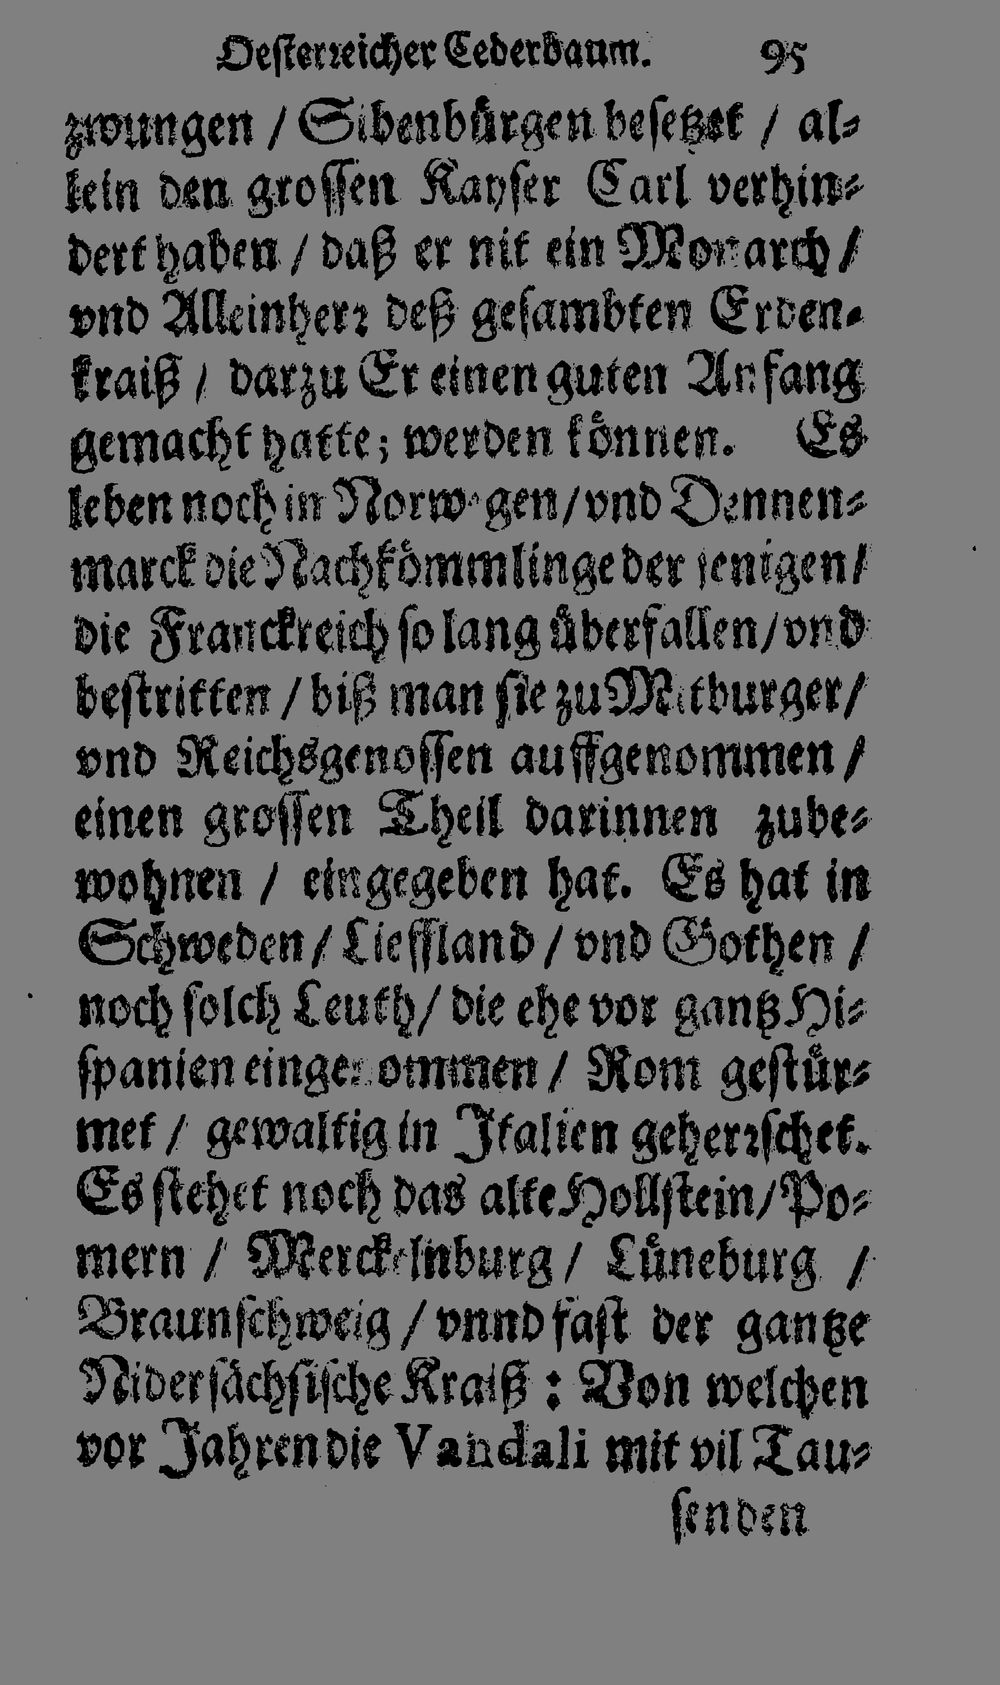 Oesterreicher Cederbaum. 95
zwungen / Sibenbürgen besetzet / al-
lein den grossen Kayser Carl verhin-
dert haben / daß er nit ein Monarch /
vnd Alleinherr deß gesambten Erden-
kraiß / darzu Er einen guten Anfang
gemacht hatte; werden können. Es
leben noch in Norwegen / vnd Dennen-
marck die Nachkömmlinge der jenigen /
die Franckreich so lang überfallen / vnd
bestritten / biß man sie zu Mitburger /
vnd Reichsgenossen auffgenommen /
einen grossen Theil darinnen zube-
wohnen / eingegeben hat. Es hat in
Schweden / Lieffland / vnd Gothen /
noch solch Leuth / die ehe vor gantz Hi-
spanien eingenommen / Rom gestür-
met / gewaltig in Italien geherrschet.
Es stehet noch das alte Hollstein / Po-
mern / Merckelnburg / Lüneburg /
Braunschweig / vnnd fast der gantze
Nidersächsische Kraiß : Von welchen
vor Jahren die Vandali mit vil Tau-
senden